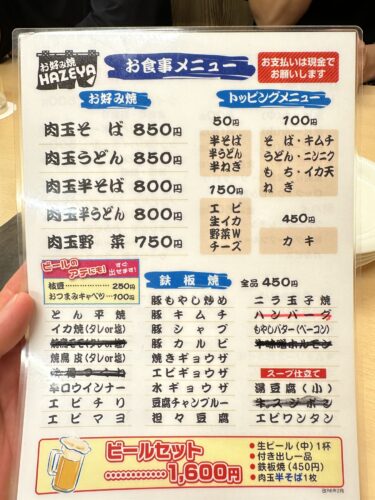 お好み焼
HAZEYA
お食事メニュー
お支払いは現金で
お願いします
お好み焼
肉玉そば 850円
肉玉うどん 850円
肉玉半そば 800円
肉玉半うどん 800円
肉玉野菜 750円
トッピングメニュー
50円
半そば
半うどん
半ねぎ
100円
そば・キムチ
うどん・ニンニク
もち・イカ天
ねぎ
150円
エビ
生イカ
野菜W
チーズ
450円
カキ
ビールの
アテにも!
すぐ
出せます!
枝豆 250円
おつまみキャベツ 100円
鉄板焼 全品450円
とん平焼
イカ焼(タレor塩)
焼鳥皮(タレor塩)
辛口ウインナー
エビチリ
エビマヨ
豚もやし炒め
豚キムチ
豚シャブ
豚カルビ
焼きギョウザ
エビギョウザ
水ギョウザ
豆腐チャンプルー
担々豆腐
ニラ玉子焼
ハンバーグ
もやしバター(ベーコン)
牛味噌ホルモン
スープ仕立て
湯豆腐(小)
エビワンタン
ビールセット
1,600円
●生ビール(中)1杯
●付き出し一品
●鉄板焼(450円)
●肉玉半そば1枚